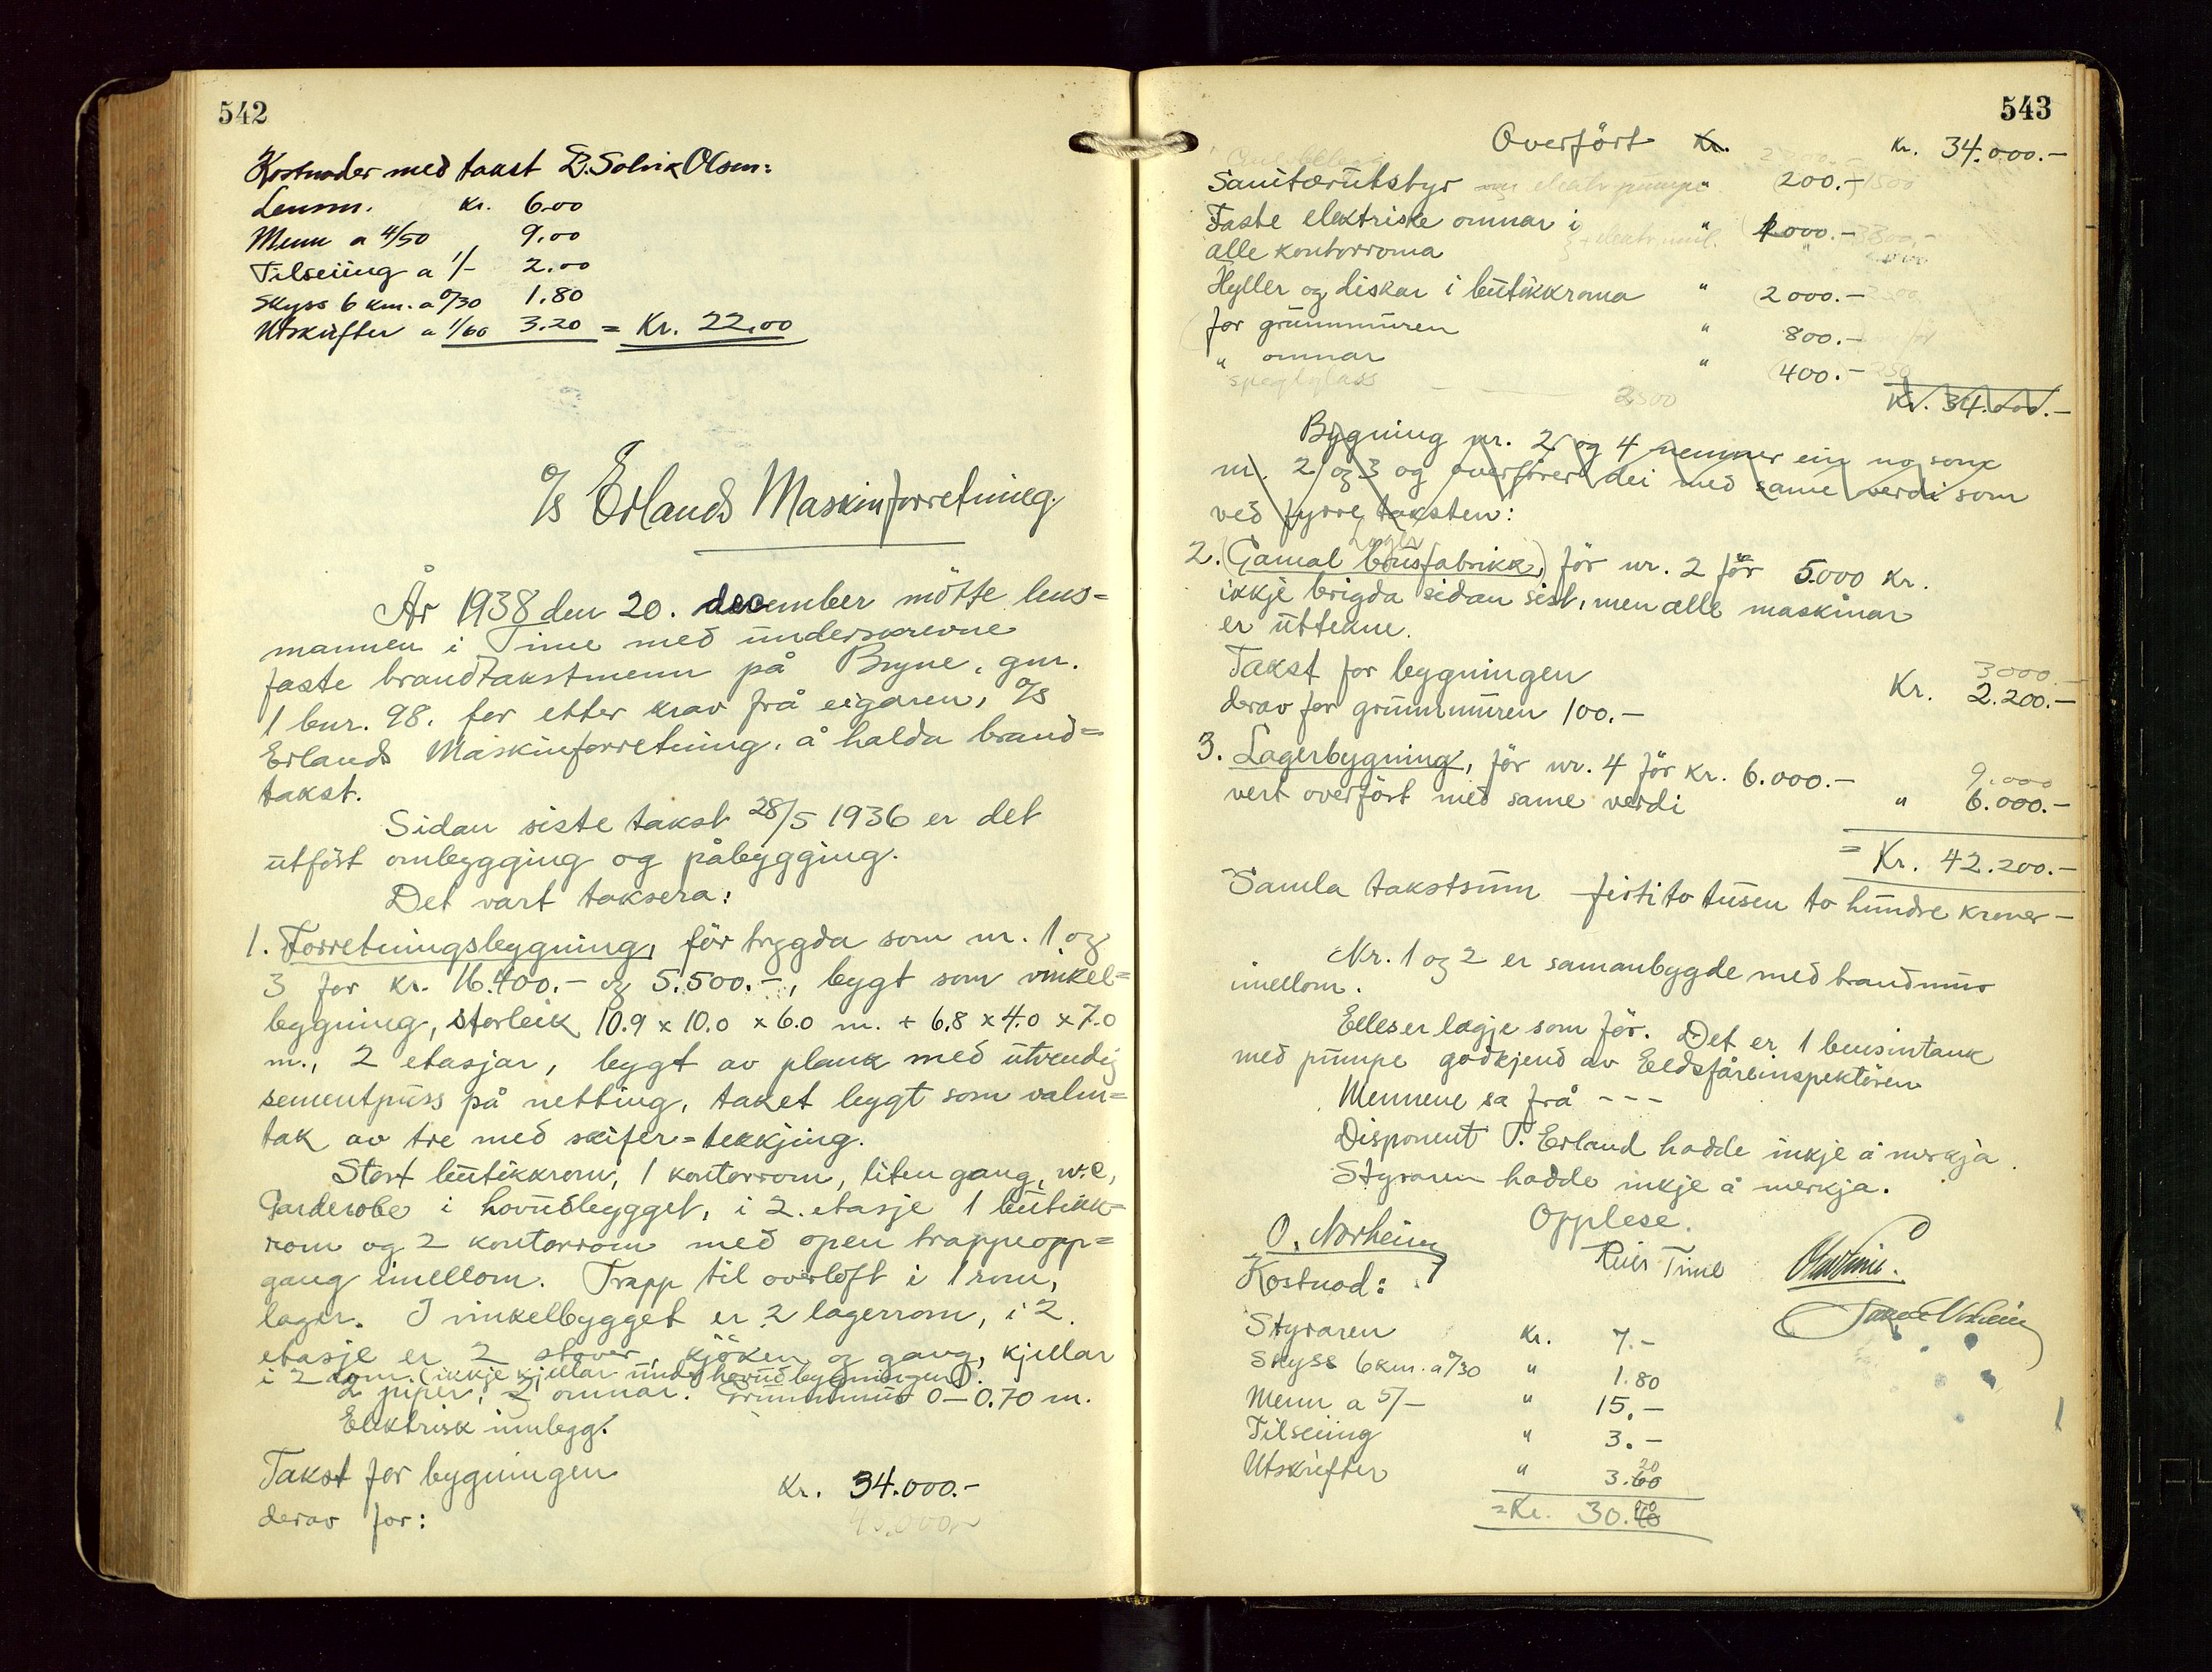 542
Kostnader med takst B. Solvik Olsen:
Lensm. kr. 6.00
Menn a 4/50 9.00
Tilseiing a 1/- 2.00
Skyss 6 km. a 0/30 1.80
Utskrifter a 1/60 3.20 = Kr. 22.00
A/S Erlands Maskinforretning.
År 1938 den 20. december mötte lens=
mannen i Time med underskrevne
faste brandtakstmenn på Bryne, gnr.
1 bnr. 98. for etter krav frå eigaren, A/S
Erlands Maskinforretning, å halda brand=
takst.
Sidan siste takst 28/5 1936 er det
utfört ombygging og påbygging.
Det vart taksera:
1. Forretningsbygning, för trygda som nr. 1 og
3 for kr. 16.400.- og 5.500.-, bygt som vinkel=
bygning, storleik 10.9 x 10.0 x 6.0 m. + 6.8 x 4.0 x 7.0
m., 2 etasjar, bygt av plank med utvendig
sementpuss på netting, taket bygt som valm=
tak av tre med skifer=tekkjing.
Stort butikkrom, 1 kontorrom, liten gang, w.c,
Garderobe i hovudbygget, i 2. etasje 1 butikk=
rom og 2 kontorrom med open trappeopp=
gang imellom. Trapp til överloft i 1 rom,
lager. I vinkelbygget er 2 lagerrom, i 2.
etasje er 2 stover, kjöken og gang, kjellar
i 2 rom. (ikkje kjellar under hovudbygningen).
2 piper, 2 omnar. Grunnmur 0 - 0.70 m.
Elektrisk innlegg.
Takst for bygningen kr. 34.000.-
derav for: 45.000.-
543
Overfört Kr. Kr. 34.000.-
Sanitærutstyr " 200.- 1500
Faste elektriske omnar i " 1000.-
alle kontorroma
Hyller og diskar i butikkroma " 2000.-
for grunnmuren " 800.-
" omnar " 400.- 250
speglglass 2500
Kr. 34.000.-
Bygning nr. 2 og 4 nemner ein no som
nr. 2 og 3 og overförer dei med same verdi som
ved fyrre taksten:
lager
2. (Gamal brusfabrikk,) för nr. 2 för 5.000 kr.
ikkje brigda sidan sist, men alle maskinar
er uttekne.
3000.-
Takst for bygningen Kr. 2.200.-
derav for grunnmuren 100.-
3. Lagerbygning, för nr. 4 för kr. 6.000.- 9.000
vert overfört med same verdi " 6.000.-
= Kr. 42.200.-
Samla takstsum firti to tusen to hundre kroner -
Nr. 1 og 2 er samanbygde med brandmur
imellom.
Elles er lagje som för. Det er 1 bensintank
med pumpe godkjend av Eldsfåreinspektören
Mennene sa frå - - -
Disponent T. Erland hadde inkje å merkja.
Styraren hadde inkje å merkja.
Opplese.
O. Norheim
Time
Kostnad:
Styraren kr. 7.-
Skyss 6 km. a 0/30 " 1.80
Menn a 5/- " 15.-
Tilseiing " 3.-
20
Utskrifter " 3.60
= Kr. 30.